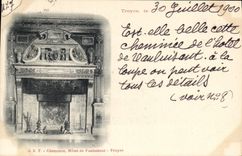 Troyes, le 30 Juillet 1900
Est-elle belle cette
cheminée de l'hôtel
de Vauluisant. à la
loupe on peut voir
tous les détails
(voir No 8)
Cheminée, Hôtel de Vauluisant - Troyes